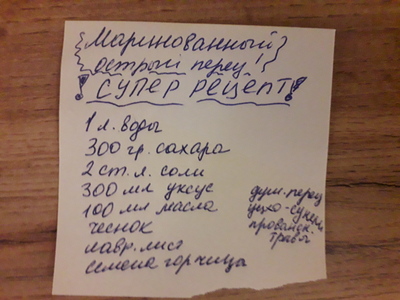 Маринованный
острый перец!
! СУПЕР РЕЦЕПТ!
1 л. воды
300 гр. сахара
2 ст. л. соли
300 мл уксус
100 мл масла
чеснок
лавр. лист
семена горчица
душ. перец
сунели
прованск.
травы